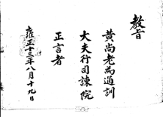 教旨
黄尚老為通訓
大夫行司諫院
正言者
雍正十三年八月十九日